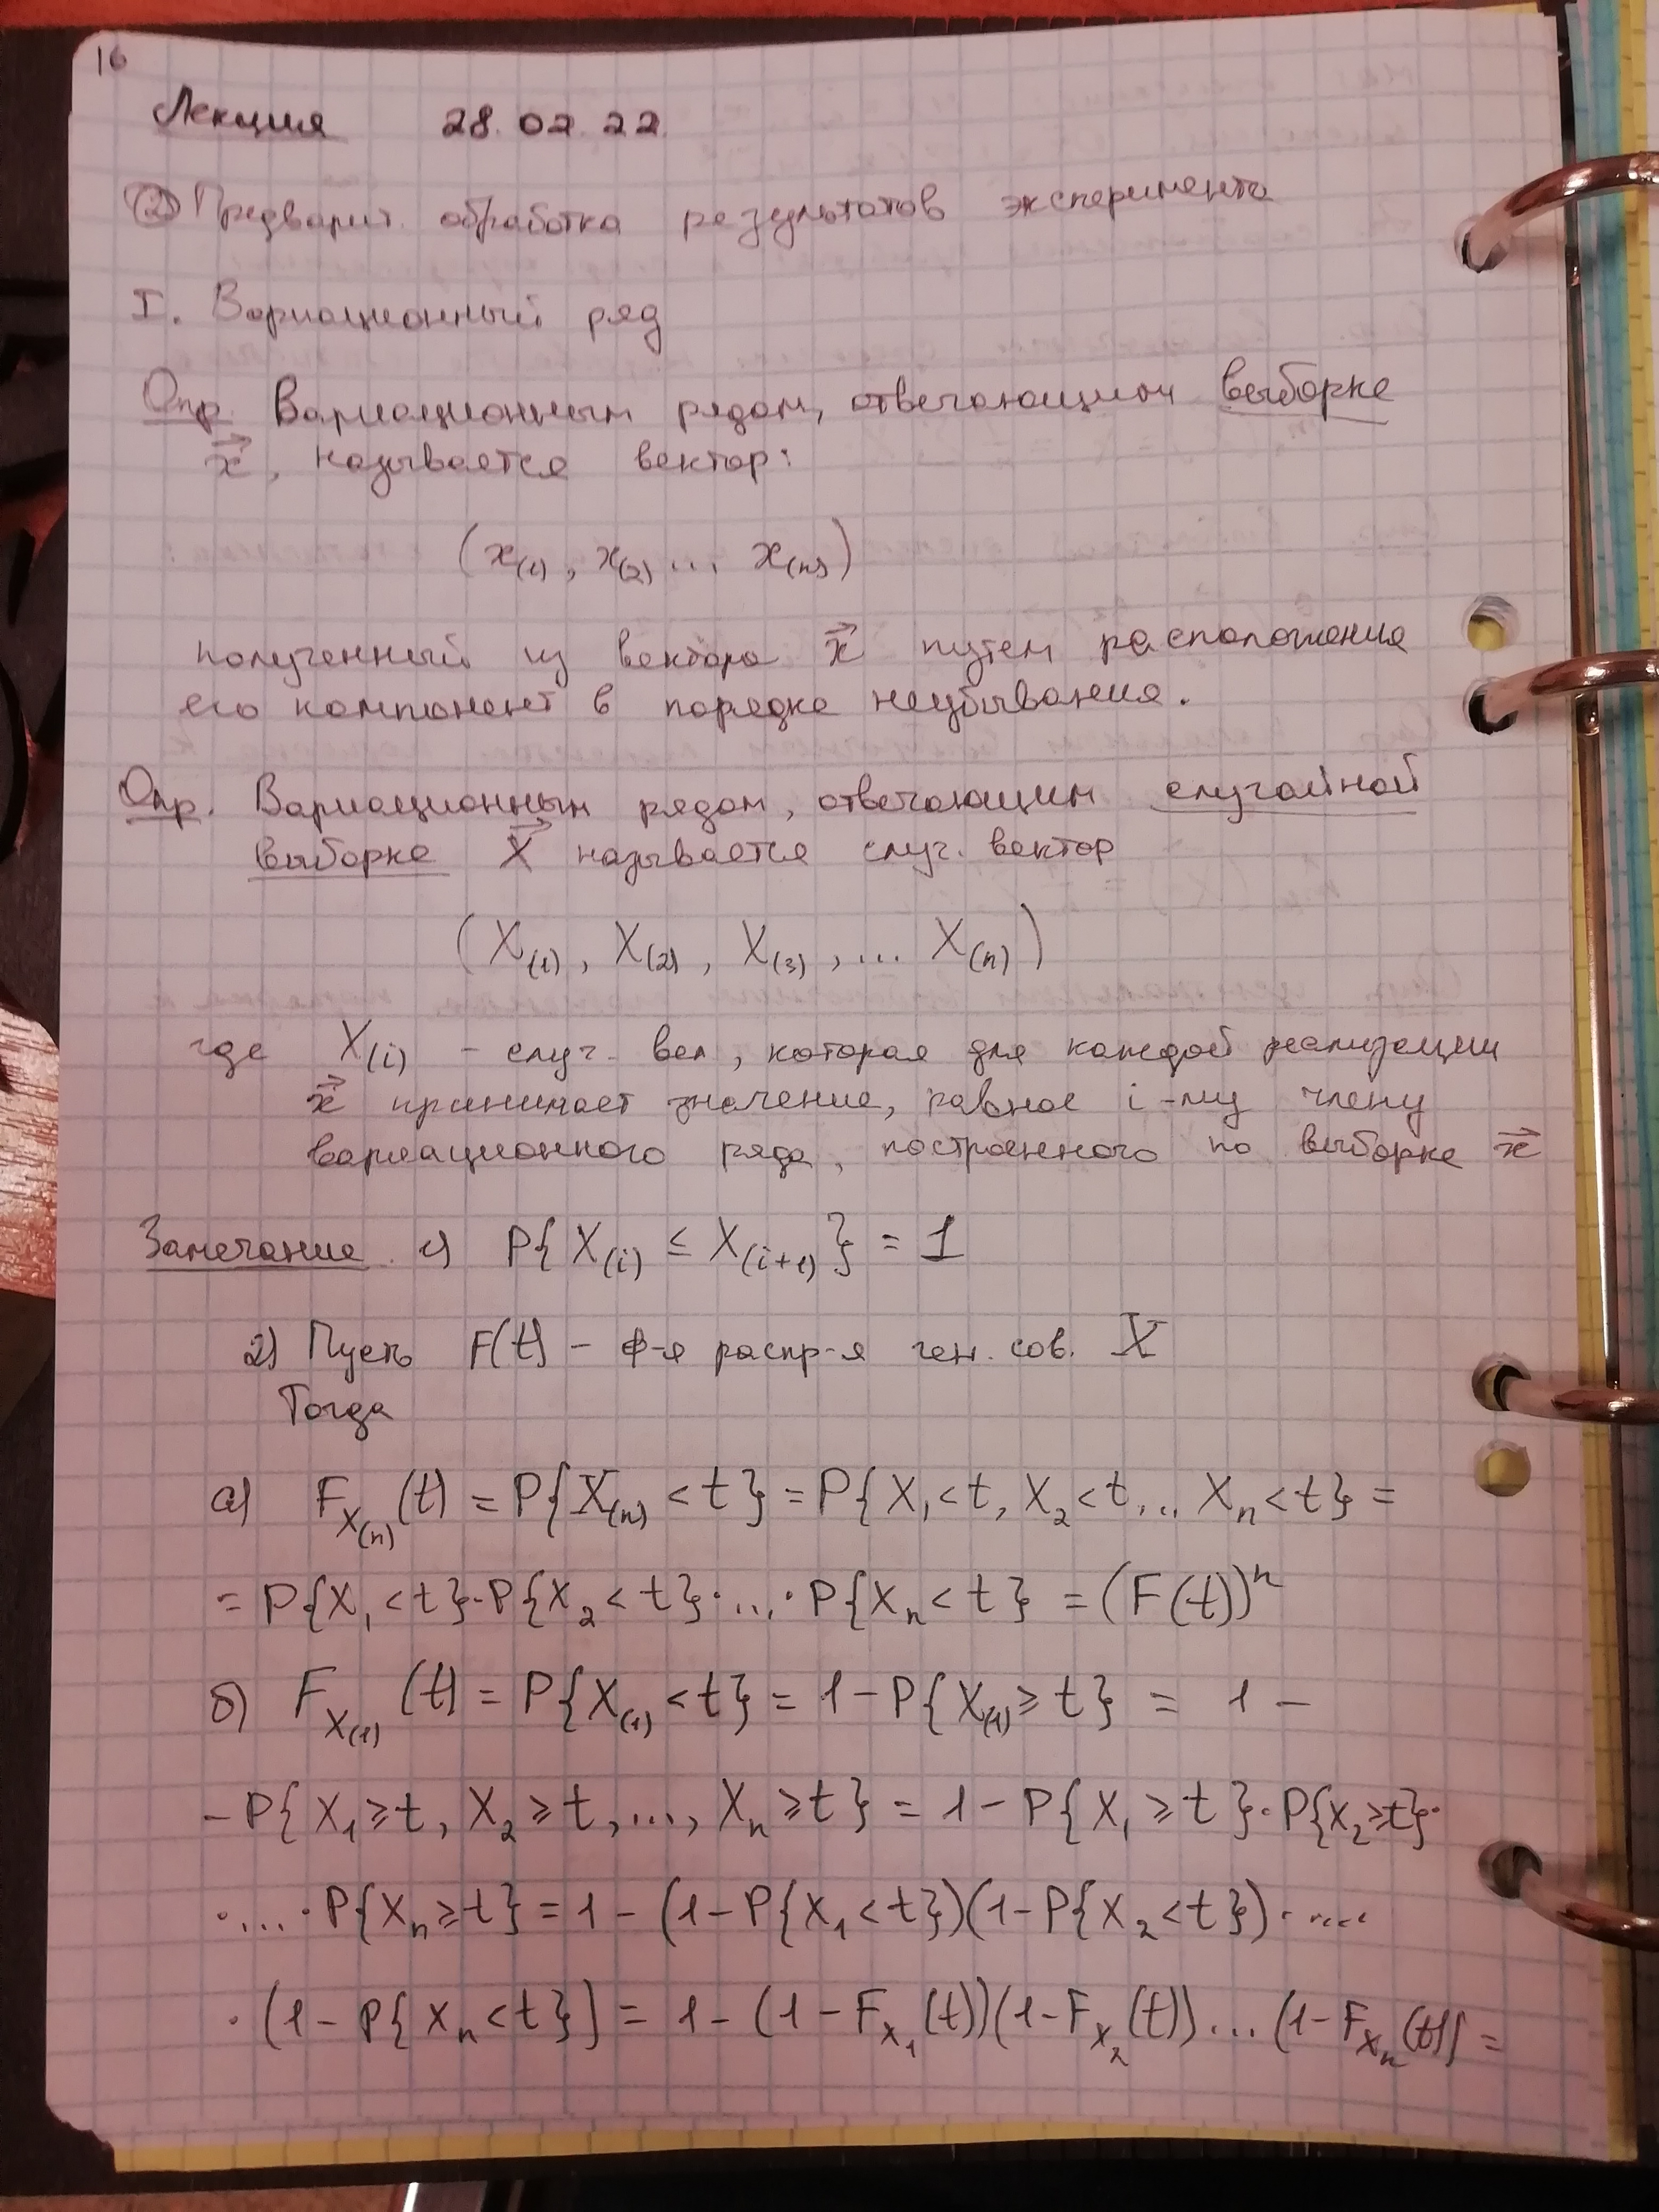 16
Лекция 28.02.22
② Предварит. обработка результатов эксперимента
I. Вариационный ряд
Опр. Вариационным рядом, отвечающим выборке
x⃗, называется вектор:
(x₍₁₎, x₍₂₎ ... x₍ₙ₎)
полученный из вектора x⃗ путем расположения
его компонент в порядке неубывания.
Опр. Вариационным рядом, отвечающим случайной
выборке X⃗ называется случ. вектор
(X₍₁₎, X₍₂₎, X₍₃₎, ... X₍ₙ₎)
где X₍ᵢ₎ - случ. вел, которая для каждой реализации
x⃗ принимает значение, равное i-му члену
вариационного ряда, построенного по выборке x⃗
Замечание. 1) P{X₍ᵢ₎ ≤ X₍ᵢ₊₁₎} = 1
2) Пусть F(t) - ф-я распр-я ген. сов. X
Тогда
а) F_X₍ₙ₎(t) = P{X₍ₙ₎ < t} = P{X₁ < t, X₂ < t, ... Xₙ < t} =
= P{X₁ < t}·P{X₂ < t}·...·P{Xₙ < t} = (F(t))ⁿ
б) F_X₍₁₎(t) = P{X₍₁₎ < t} = 1 - P{X₍₁₎ ≥ t} = 1 -
- P{X₁ ≥ t, X₂ ≥ t, ..., Xₙ ≥ t} = 1 - P{X₁ ≥ t}·P{X₂ ≥ t}·
·...·P{Xₙ ≥ t} = 1 - (1 - P{X₁ < t})(1 - P{X₂ < t})·....
·(1 - P{Xₙ < t}) = 1 - (1 - F_X₁(t))(1 - F_X₂(t))...(1 - F_Xₙ(t)) =